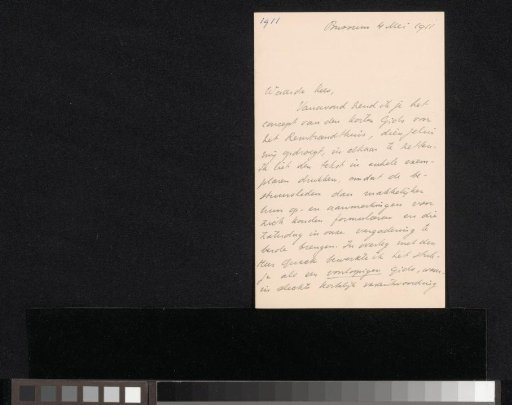 1911
Bussum 4 Mei 1911
Waarde Kees,
Vanavond zend ik je het
concept van den korten Gids voor
het Rembrandthuis, dien jelui
mij opdroegt, in elkaar te zetten.
Ik liet den tekst in enkele exem-
plaren drukken, omdat de be-
stuursleden dan makkelijker
hun op- en aanmerkingen voor
zich konden formuleeren en die
Zaterdag in onze vergadering te
berde brengen. In overleg met den
Heer bewerkte ik het stuk-
je als een voorloopigen Gids, waar-
in slechts kortelijk verantwoording